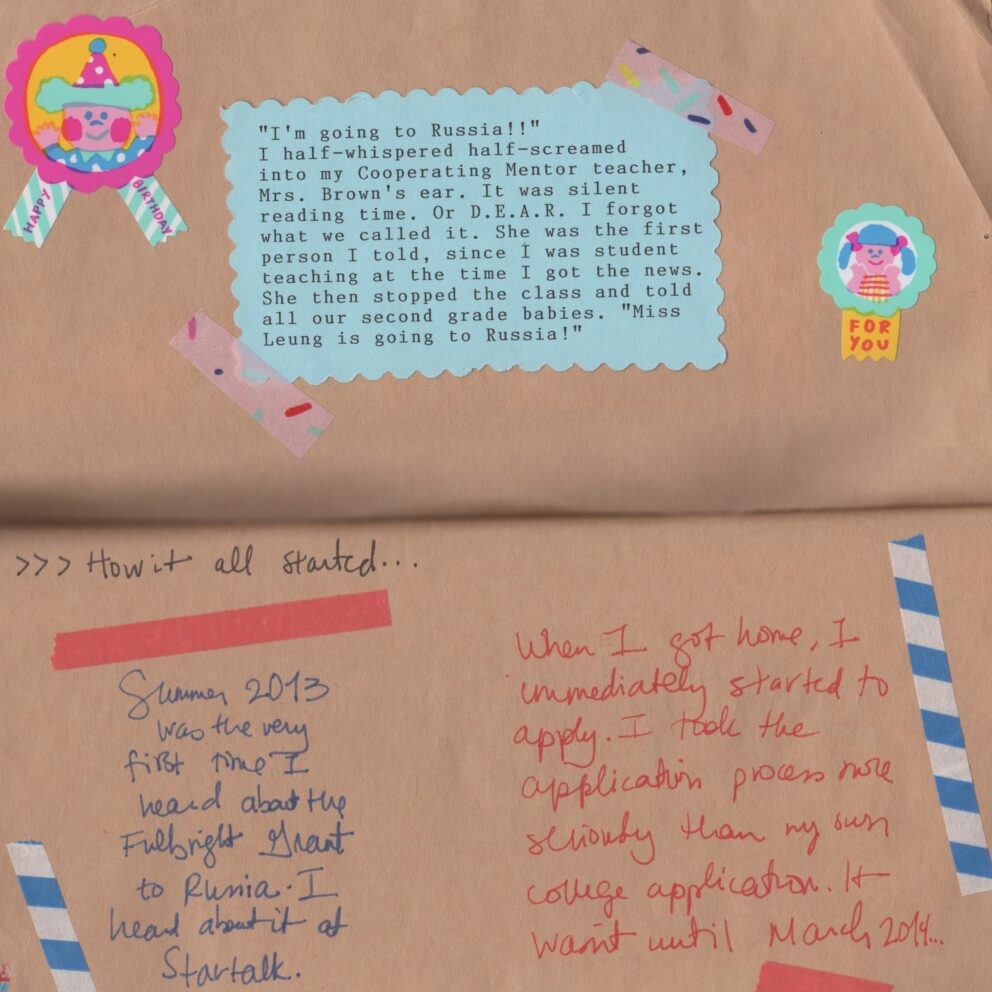 HAPPY
BIRTHDAY
"I'm going to Russia!!"
I half-whispered half-screamed
into my Cooperating Mentor teacher,
Mrs. Brown's ear. It was silent
reading time. Or D.E.A.R. I forgot
what we called it. She was the first
person I told, since I was student
teaching at the time I got the news.
She then stopped the class and told
all our second grade babies. "Miss
Leung is going to Russia!"
FOR
YOU
>>> How it all started...
Summer 2013
was the very
first time I
heard about the
Fulbright Grant
to Russia. I
heard about it at
Startalk.
When I got home, I
immediately started to
apply. I took the
application process more
seriously than my own
college application. It
wasn't until March 2014...